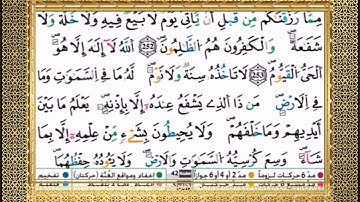 مِمَّا رَزَقْنَٰكُم مِّن قَبْلِ أَن يَأْتِىَ يَوْمٌ لَّا بَيْعٌ فِيهِ وَلَا خُلَّةٌ وَلَا
شَفَٰعَةٌ ۗ وَٱلْكَٰفِرُونَ هُمُ ٱلظَّٰلِمُونَ ٢٥٢ ٱللَّهُ لَآ إِلَٰهَ إِلَّا هُوَ
ٱلْحَىُّ ٱلْقَيُّومُ ۖ ٢٥٣ لَا تَأْخُذُهُۥ سِنَةٌ وَلَا نَوْمٌ ۖ لَّهُۥ مَا فِى ٱلسَّمَٰوَٰتِ وَمَا
فِى ٱلْأَرْضِ ۖ مَن ذَا ٱلَّذِى يَشْفَعُ عِندَهُۥٓ إِلَّا بِإِذْنِهِۦ ۖ يَعْلَمُ مَا بَيْنَ
أَيْدِيهِمْ وَمَا خَلْفَهُمْ ۖ وَلَا يُحِيطُونَ بِشَىْءٍ مِّنْ عِلْمِهِۦٓ إِلَّا بِمَا
شَآءَ ۖ وَسِعَ كُرْسِيُّهُ ٱلسَّمَٰوَٰتِ وَٱلْأَرْضَ ۖ وَلَا يَـُٔودُهُۥ حِفْظُهُمَا ۖ
مد 6 حركات لزوماً مد 2 أو 4 أو 6 جوازاً 42 إخفاء ومواقع الغُنَّة (حركتان) تفخيم